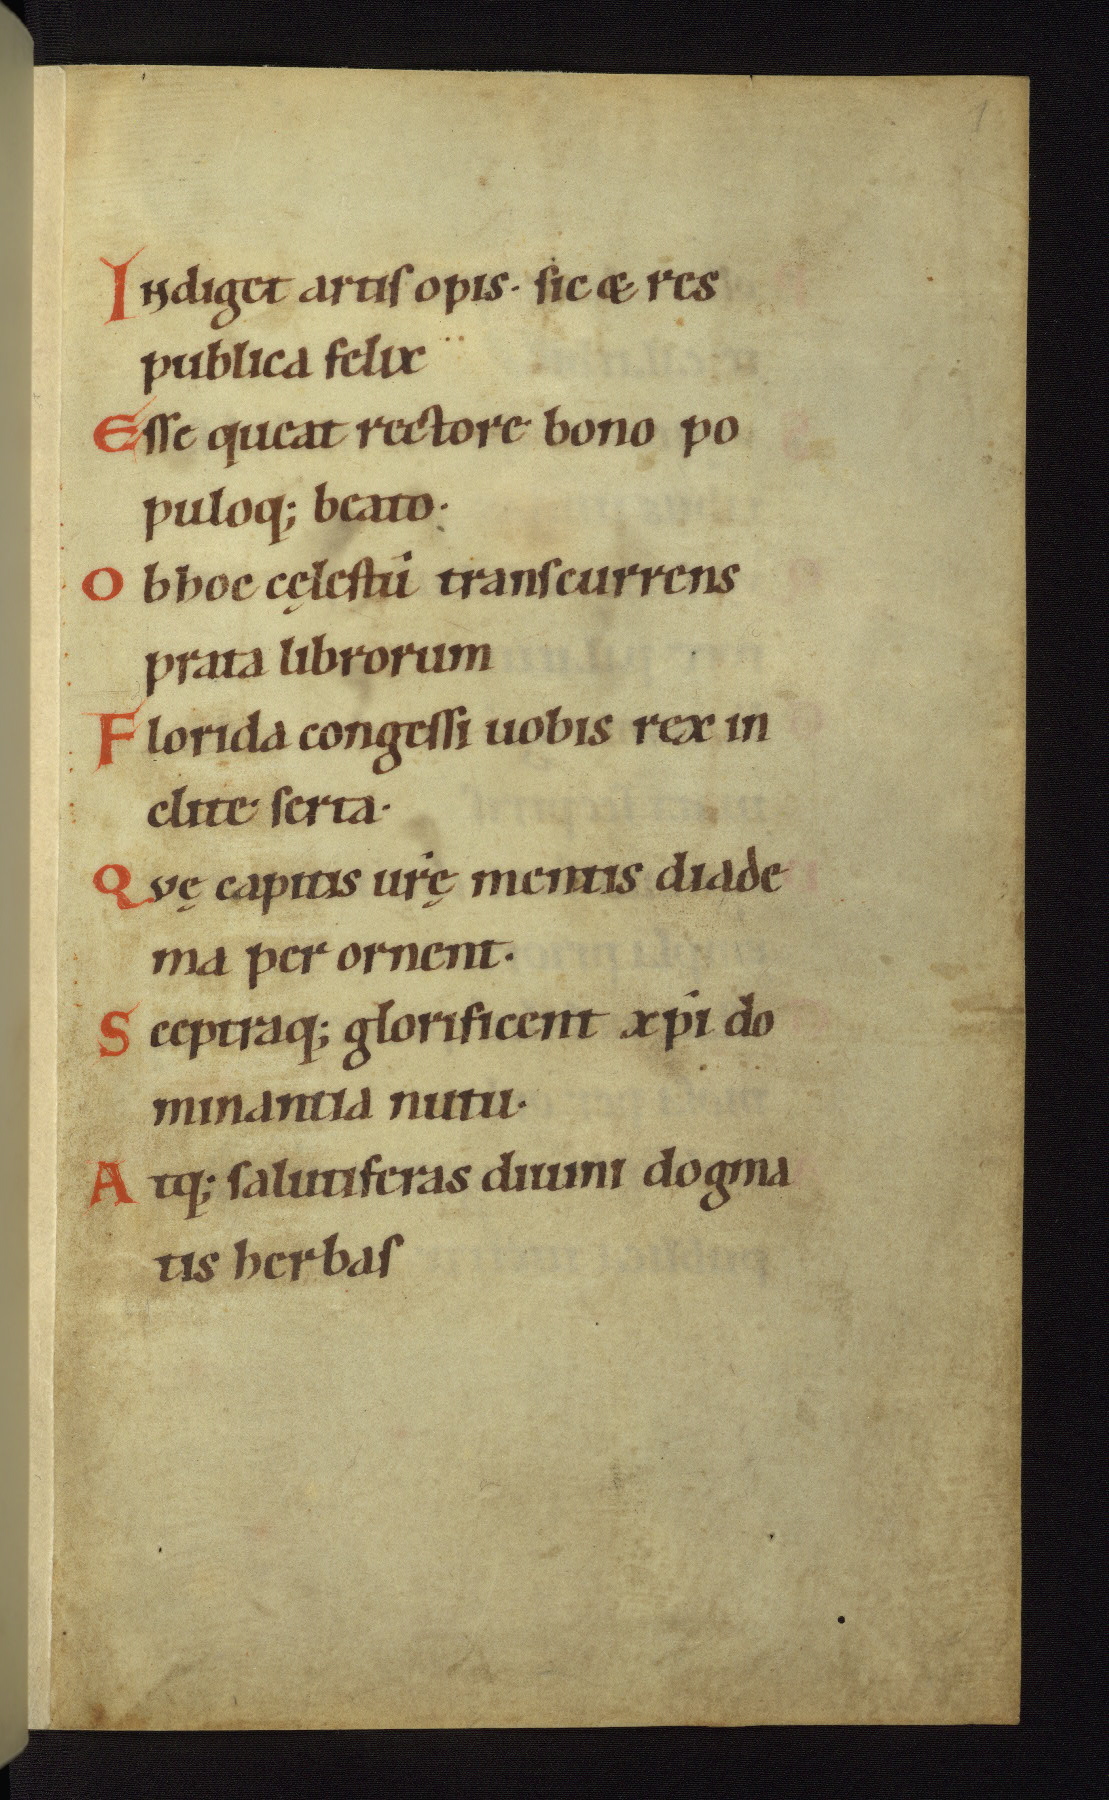 1
Indiget artis opis· sic æ res
publica felix
Esse queat rectore bono po
puloq; beato·
Ob hoc cęlestiū transcurrens
prata librorum
Florida congessi uobis rex in
clite serta·
Qvę capitis ur̄ę mentis diade
ma per ornent·
Sceptraq; glorificent xp̄i do
minantia nutu·
Atq; salutiferas diuini dogma
tis herbas